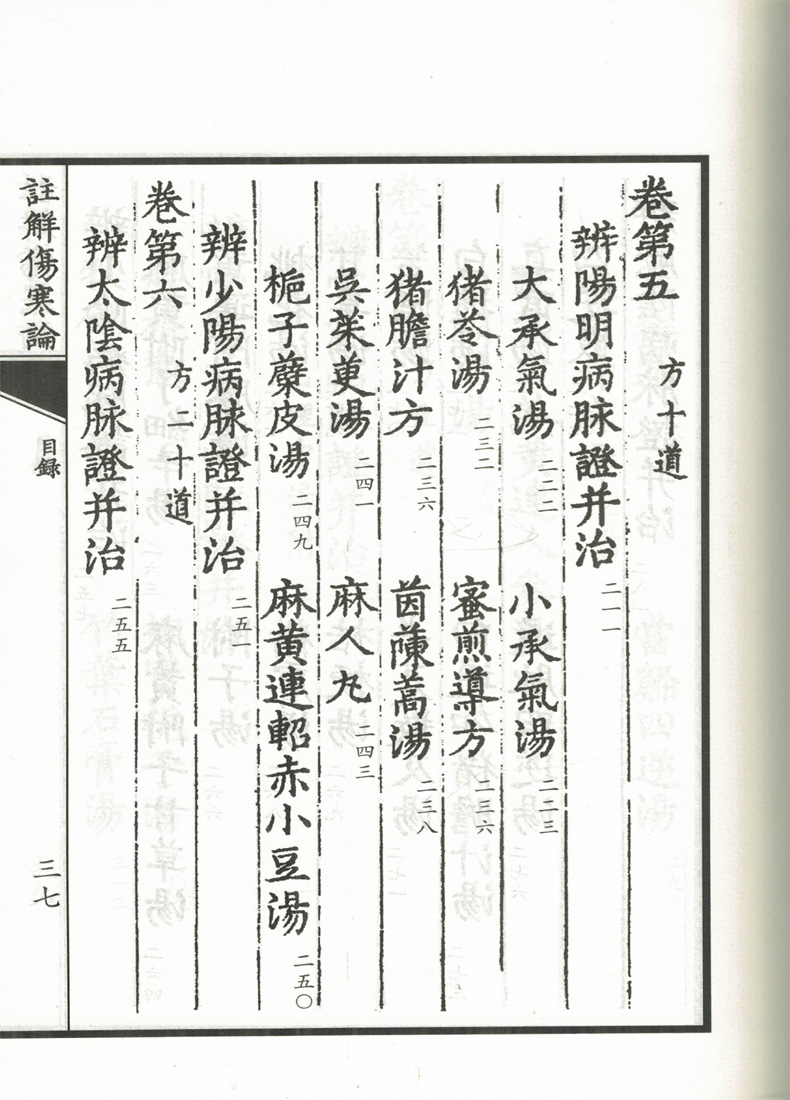 卷第五 方十道
辨陽明病脉證并治 二一一
大承氣湯 二二二 小承氣湯 二二三
猪苓湯 二三二 蜜煎導方 二三六
猪膽汁方 二三六 茵蔯蒿湯 二三八
吳茱萸湯 二四一 麻人丸 二四三
梔子蘗皮湯 二四九 麻黄連軺赤小豆湯 二五〇
辨少陽病脉證并治 二五一
卷第六 方二十道
辨太陰病脉證并治 二五五
註解傷寒論 目録 三七